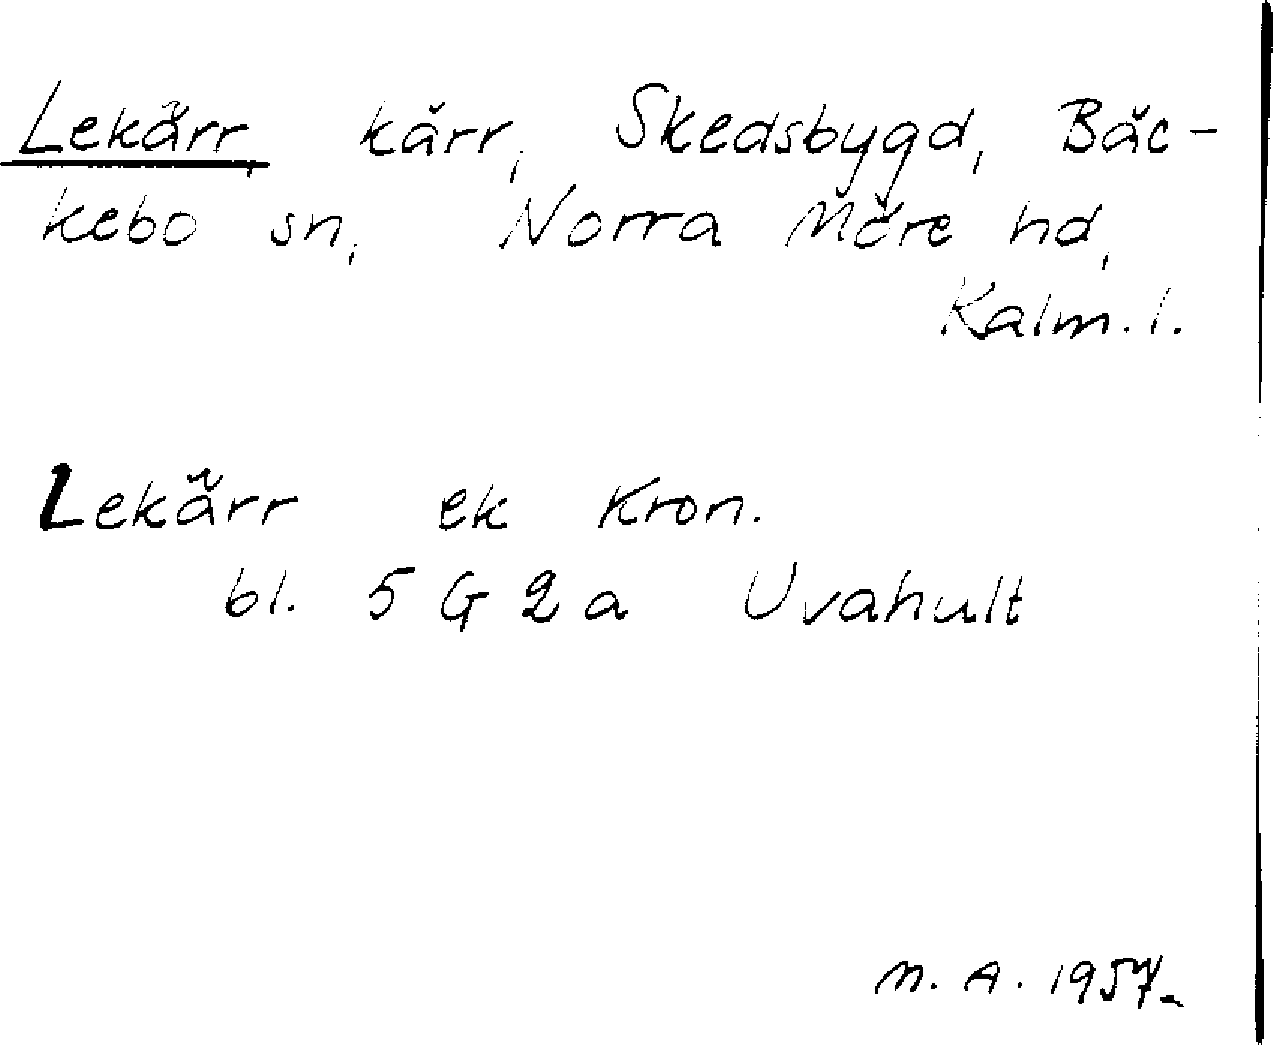 Lekärr, kärr, Skedsbygd, Bäc-
kebo sn, Norra Möre hd,
Kalm. l.
Lekärr ek Kron.
bl. 5 G 2 a Uvahult
M. A. 1957.